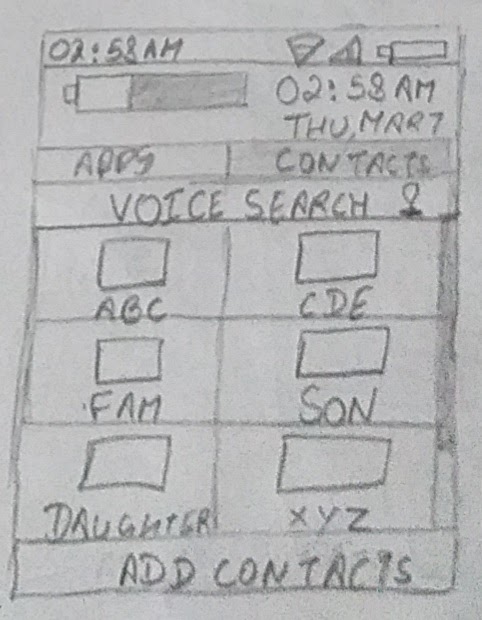 02:58 AM
02:58 AM
THU, MAR 7
APPS CONTACTS
VOICE SEARCH
ABC CDE
FAM SON
DAUGHTER XYZ
ADD CONTACTS